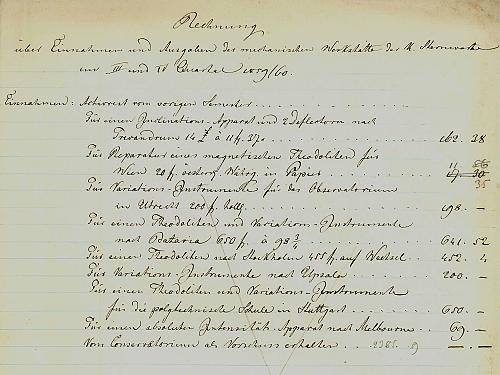 Rechnung
über Einnahmen und Ausgaben der mechanischen Werkstätte der K. Sternwarte
im III und IV Quartal 1859/60.
Einnahmen: Activrest vom vorigen Semester
Für einen Inclinations-Apparat und 2 Deflectoren nach
Trevandrum 14 £ à 11 f. 37 162. 38
Für Reparatur eines magnetischen Theodoliten für
Wien 20 f. österr. Währg. in Papier 17 30
35
Für Variations-Instrumente für das Observatorium
in Utrecht 200 f. holl. 198. –
Für einen Theodoliten und Variations-Instrumente
nach Batavia 650 f. à 98 3/4 641. 52
Für einen Theodoliten nach Stockholm 455 f. auf Wechsel 452. 4
Für Variations-Instrumente nach Upsala 200. –
Für einen Theodoliten und Variations-Instrumente
für die polytechnische Schule in Stuttgart 650. –
Für einen absoluten Intensitäts-Apparat nach Melbourne 69. –
Vom Conservatorium als Vorschuss erhalten 2385. 9 –. –